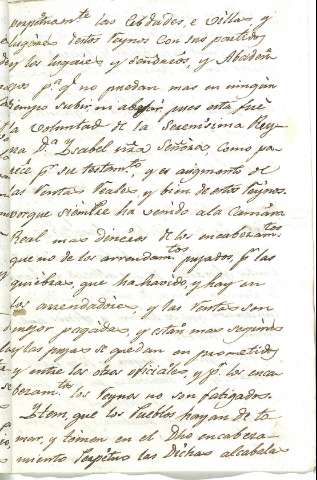 perpetuamte. las Cibdades, e Villas, y
lugares destos Reynos con sus partidos
y los lugares y Condados, y Abaden
gos pa. q. no puedan mas en ningun
tiempo subir, ni abajar, pues esta fue
la voluntad de la Serenisima Rey
na Da. Ysabel nra Señora, como pa
rece pr. su testamto, y es augmento de
las Rentas Reales y bien destos Reynos.
porque siempre ha venido a la Camara
Real mas dineros de los encabezamtos
que no de los arrendamtos. pujados, pr. las
quiebras que ha havido, y hay en
los arrendadores, y las Rentas son
mejor pagadas, y estan mas seguras
y las pujas se quedan en prometidos
y entre los otros oficiales, y pr. los enca
bezamtos los Reynos no son fatigados.
Ytem, que los Pueblos hayan de to
mar, y tomen en el Dho encabeza
miento perpetuo las Dichas alcabala